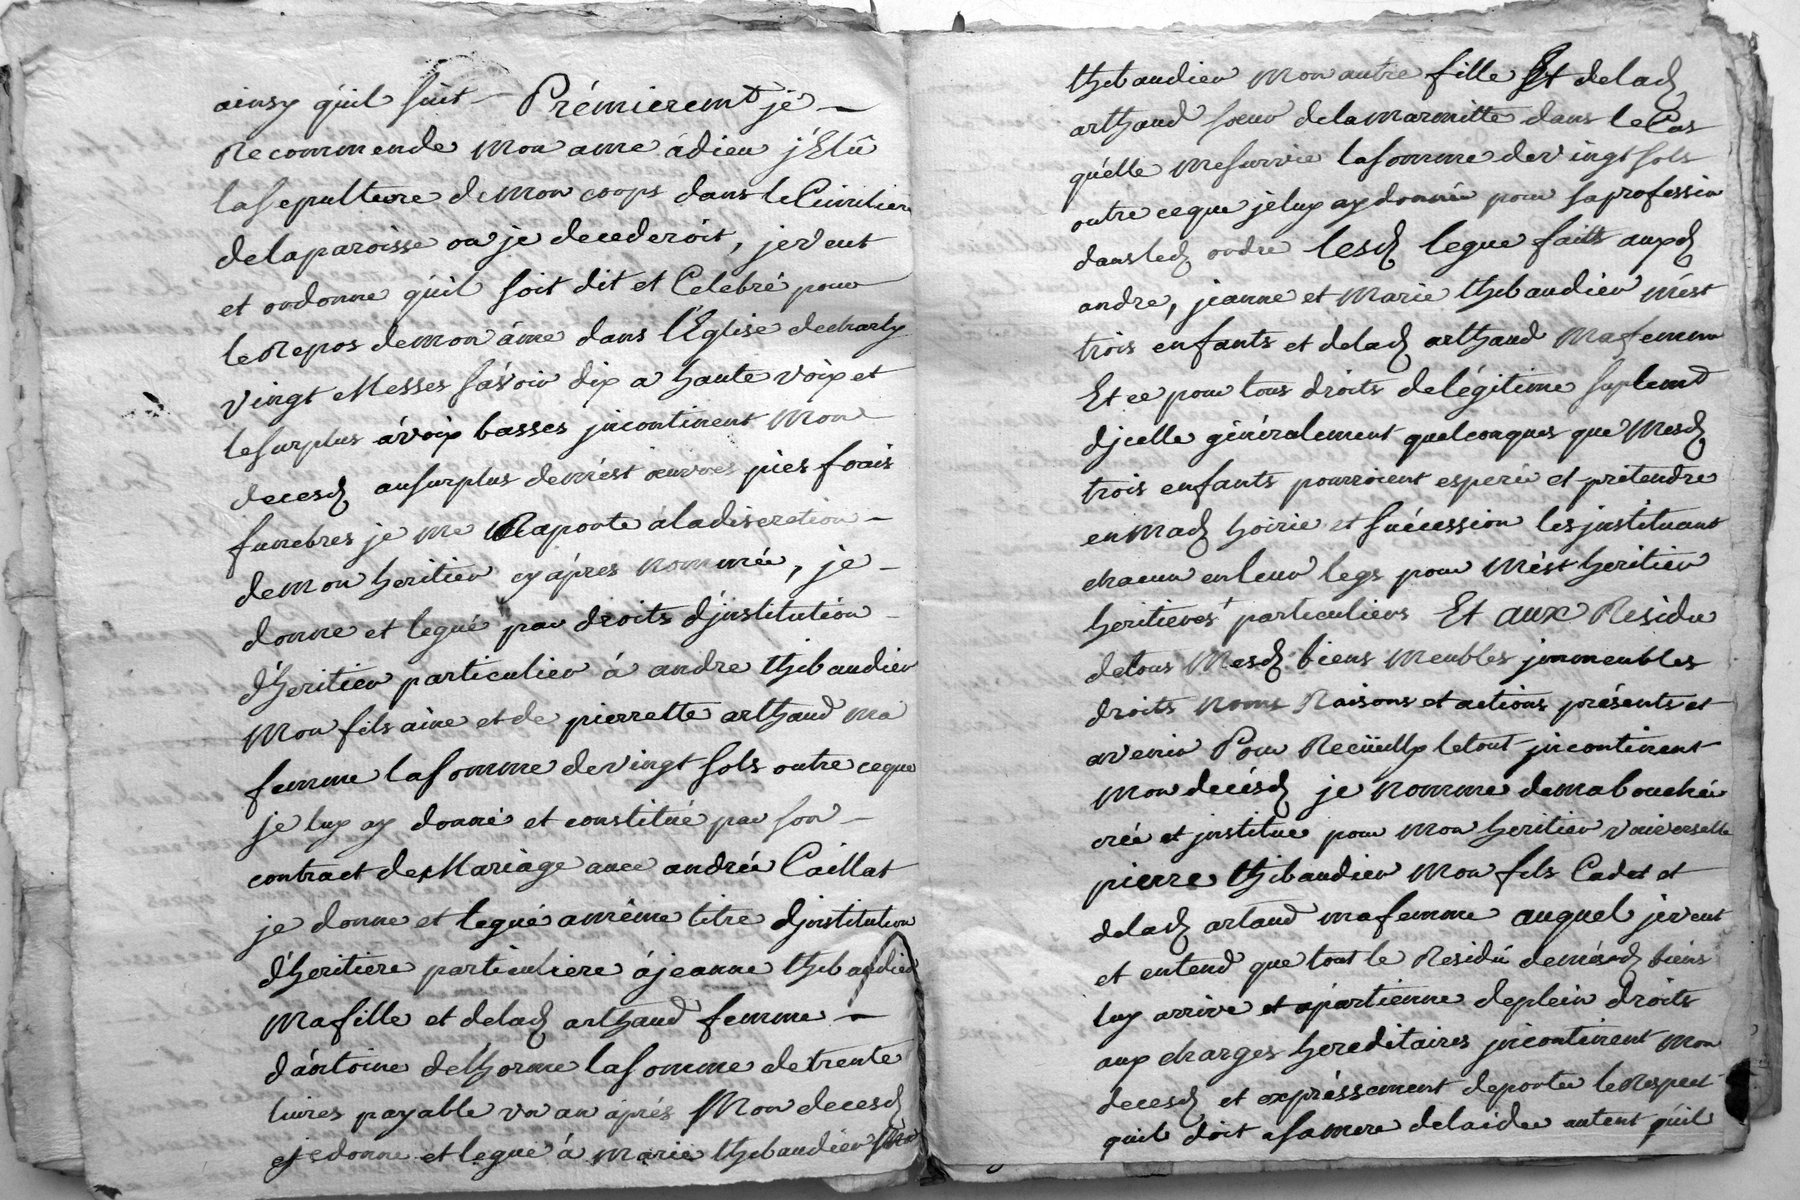 ainsy qúil súit Prémieremt je
Recommende mon ame àdieu j'Elû
lasepulteure demon corps dans le Cimitiere
delaparoisse ou je decederoit, jeveut
et ordonne qúil soit dit et Celebré pour
leRepos demon âme dans l'Eglise decharly
vingt Messes sàvoir dix a haute voix et
lesurplus àvoix basses jncontinent mon
decesd ausurplus demest œuvres pies frais
funebres je me Raporte àladiscretion
demon heritier cy àpres nommée, je
donne et legué par droits d'jnstitution
d'heritier particulier à andre thibaudier
Mon fils aine et de pierrette arthaud ma
femme lasomme devingt sols outre ceque
je luy ay donné et constitué par son
contract de Mariage avec andrée Caillat
je donne et legué amême titre djnstitution
d'heritiere particuliere àjeanne thibaudier
Mafille et delad arthaud femme
d'antoine delhorme lasomme detrente
livres payable un an àprés Mon decesd
jedonne et legué à Marie thibaudier
thibaudier Mon autre fille Et delad
arthaud soeur delamarmitte dans leCas
qúelle mesurvie lasomme devingt sols
outre ceque jeluy ay donnée pour saprofession
dansled ordre lesd legue faits auxd
andre, jeanne et Marie thibaudier mést
trois enfants et delad arthaud Mafemme
Et ce pour tous droits delégitime suplemt
djcelle généralement quelconques que Mesd
trois enfants pourroient esperée et prétendre
en Mad hoirie et sucéssion les jnstituant
chacun enleur legs pour Mést heritier
heritieres particuliers Et aux Residu
detous Mesd biens Meubles jmmeubles
droits noms Raisons et actions présents et
avenir Pour Recüeilly letout jncontinent
Mon decésd je nomme demabouchée
crée et jnstitue pour Mon heritier vniverselle
pierre thibaudier Mon fils Cadet et
delad artaud mafemme auquel jeveut
et entend que tout le Residú demésd biens
luy arrive et apartienne deplein droits
aux charges hereditaires jncontinent Mon
decesd et expréssement deporter leRespect
quil doit àsamere delaidee autent qúil